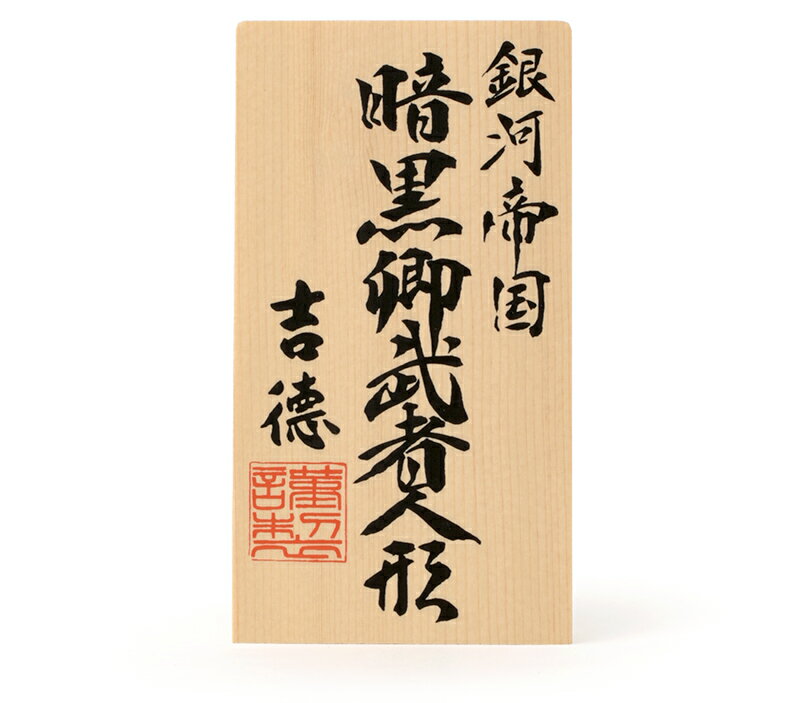 銀河帝国
暗黒卿武者人形
吉德
謹製